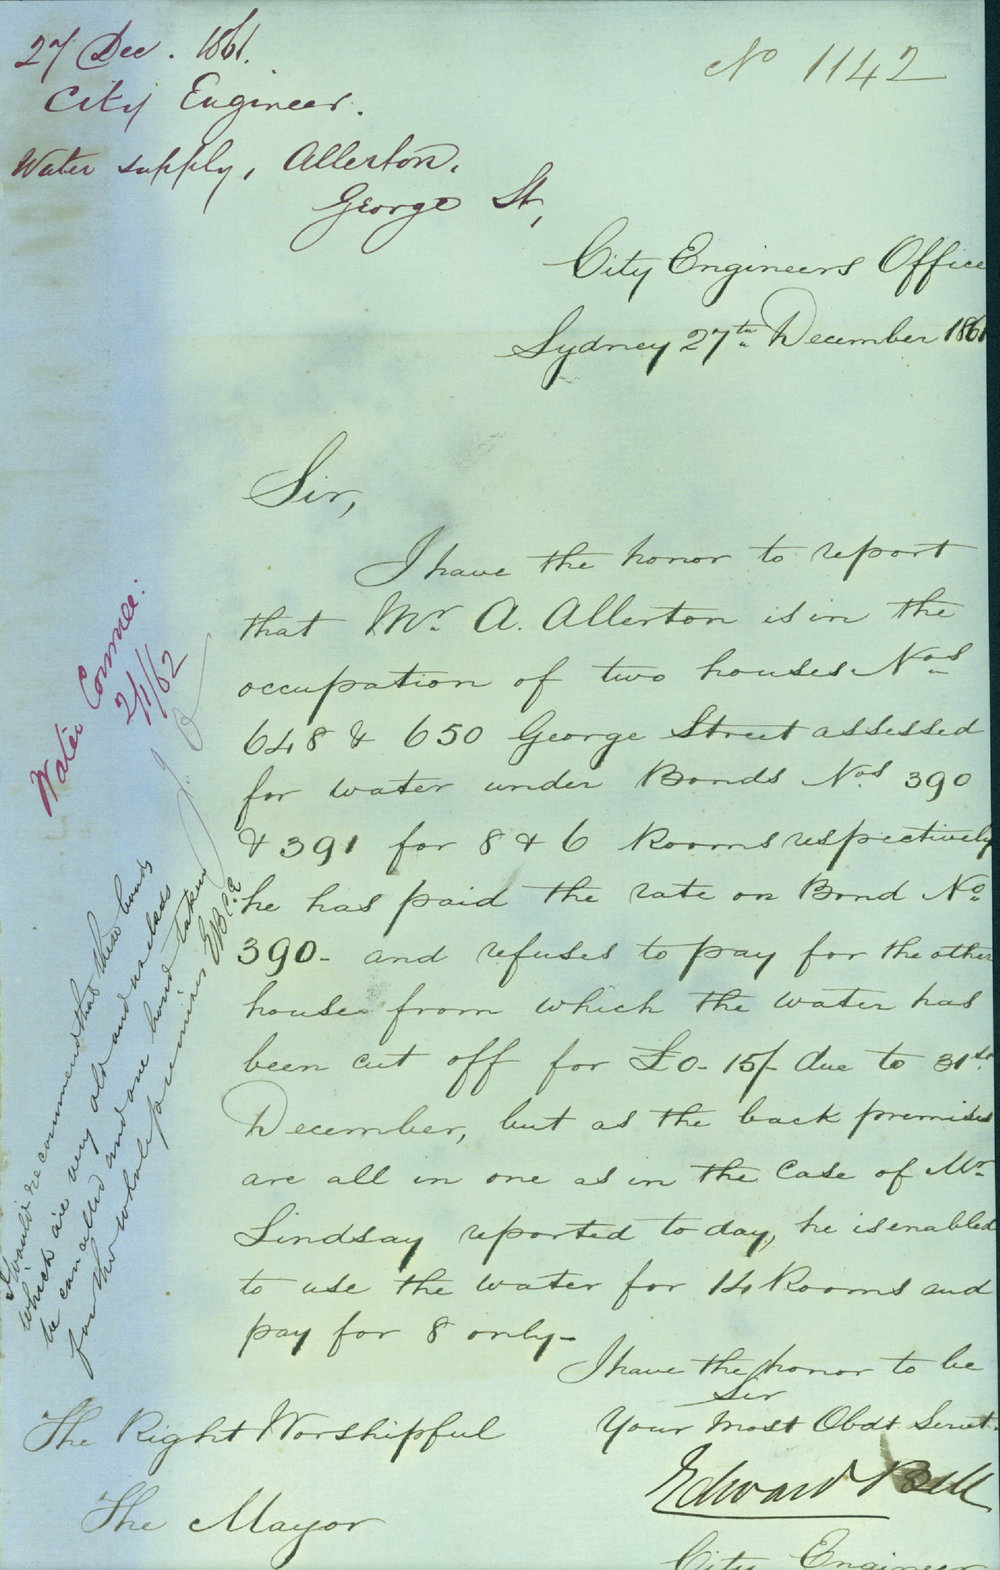 27 Dec. 1861.
City Engineer.
Water supply, Allerton.
George St,
No 1142
City Engineers Office
Sydney 27th December 1861
Sir,
I have the honor to report
that Mr. A. Allerton is in the
occupation of two houses Nos
648 & 650 George Street assessed
for water under Bonds Nos 390
& 391 for 8 & 6 Rooms respectively
he has paid the rate on Bond No
390- and refuses to pay for the other
house from which the water has
been cut off for £0-15/- due to 31st
December, but as the back premises
are all in one as in the Case of Mr
Lindsay reported to day, he is enabled
to use the water for 14 Rooms and
pay for 8 only-
I have the honor to be
Sir
Your Most Obdt Servt.
Edward Bell
City Engineer
The Right Worshipful
The Mayor
Water Commee.
2/1/62
I would recommend that these bonds
which are very old and useless
be cancelled and one bond taken
for the whole premises EB C.E